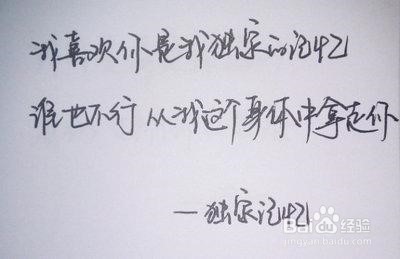 我喜欢你是我独家的记忆
谁也不行 从我这个身体中拿走你
—独家记忆
Baidu 经验
jingyan.baidu.com